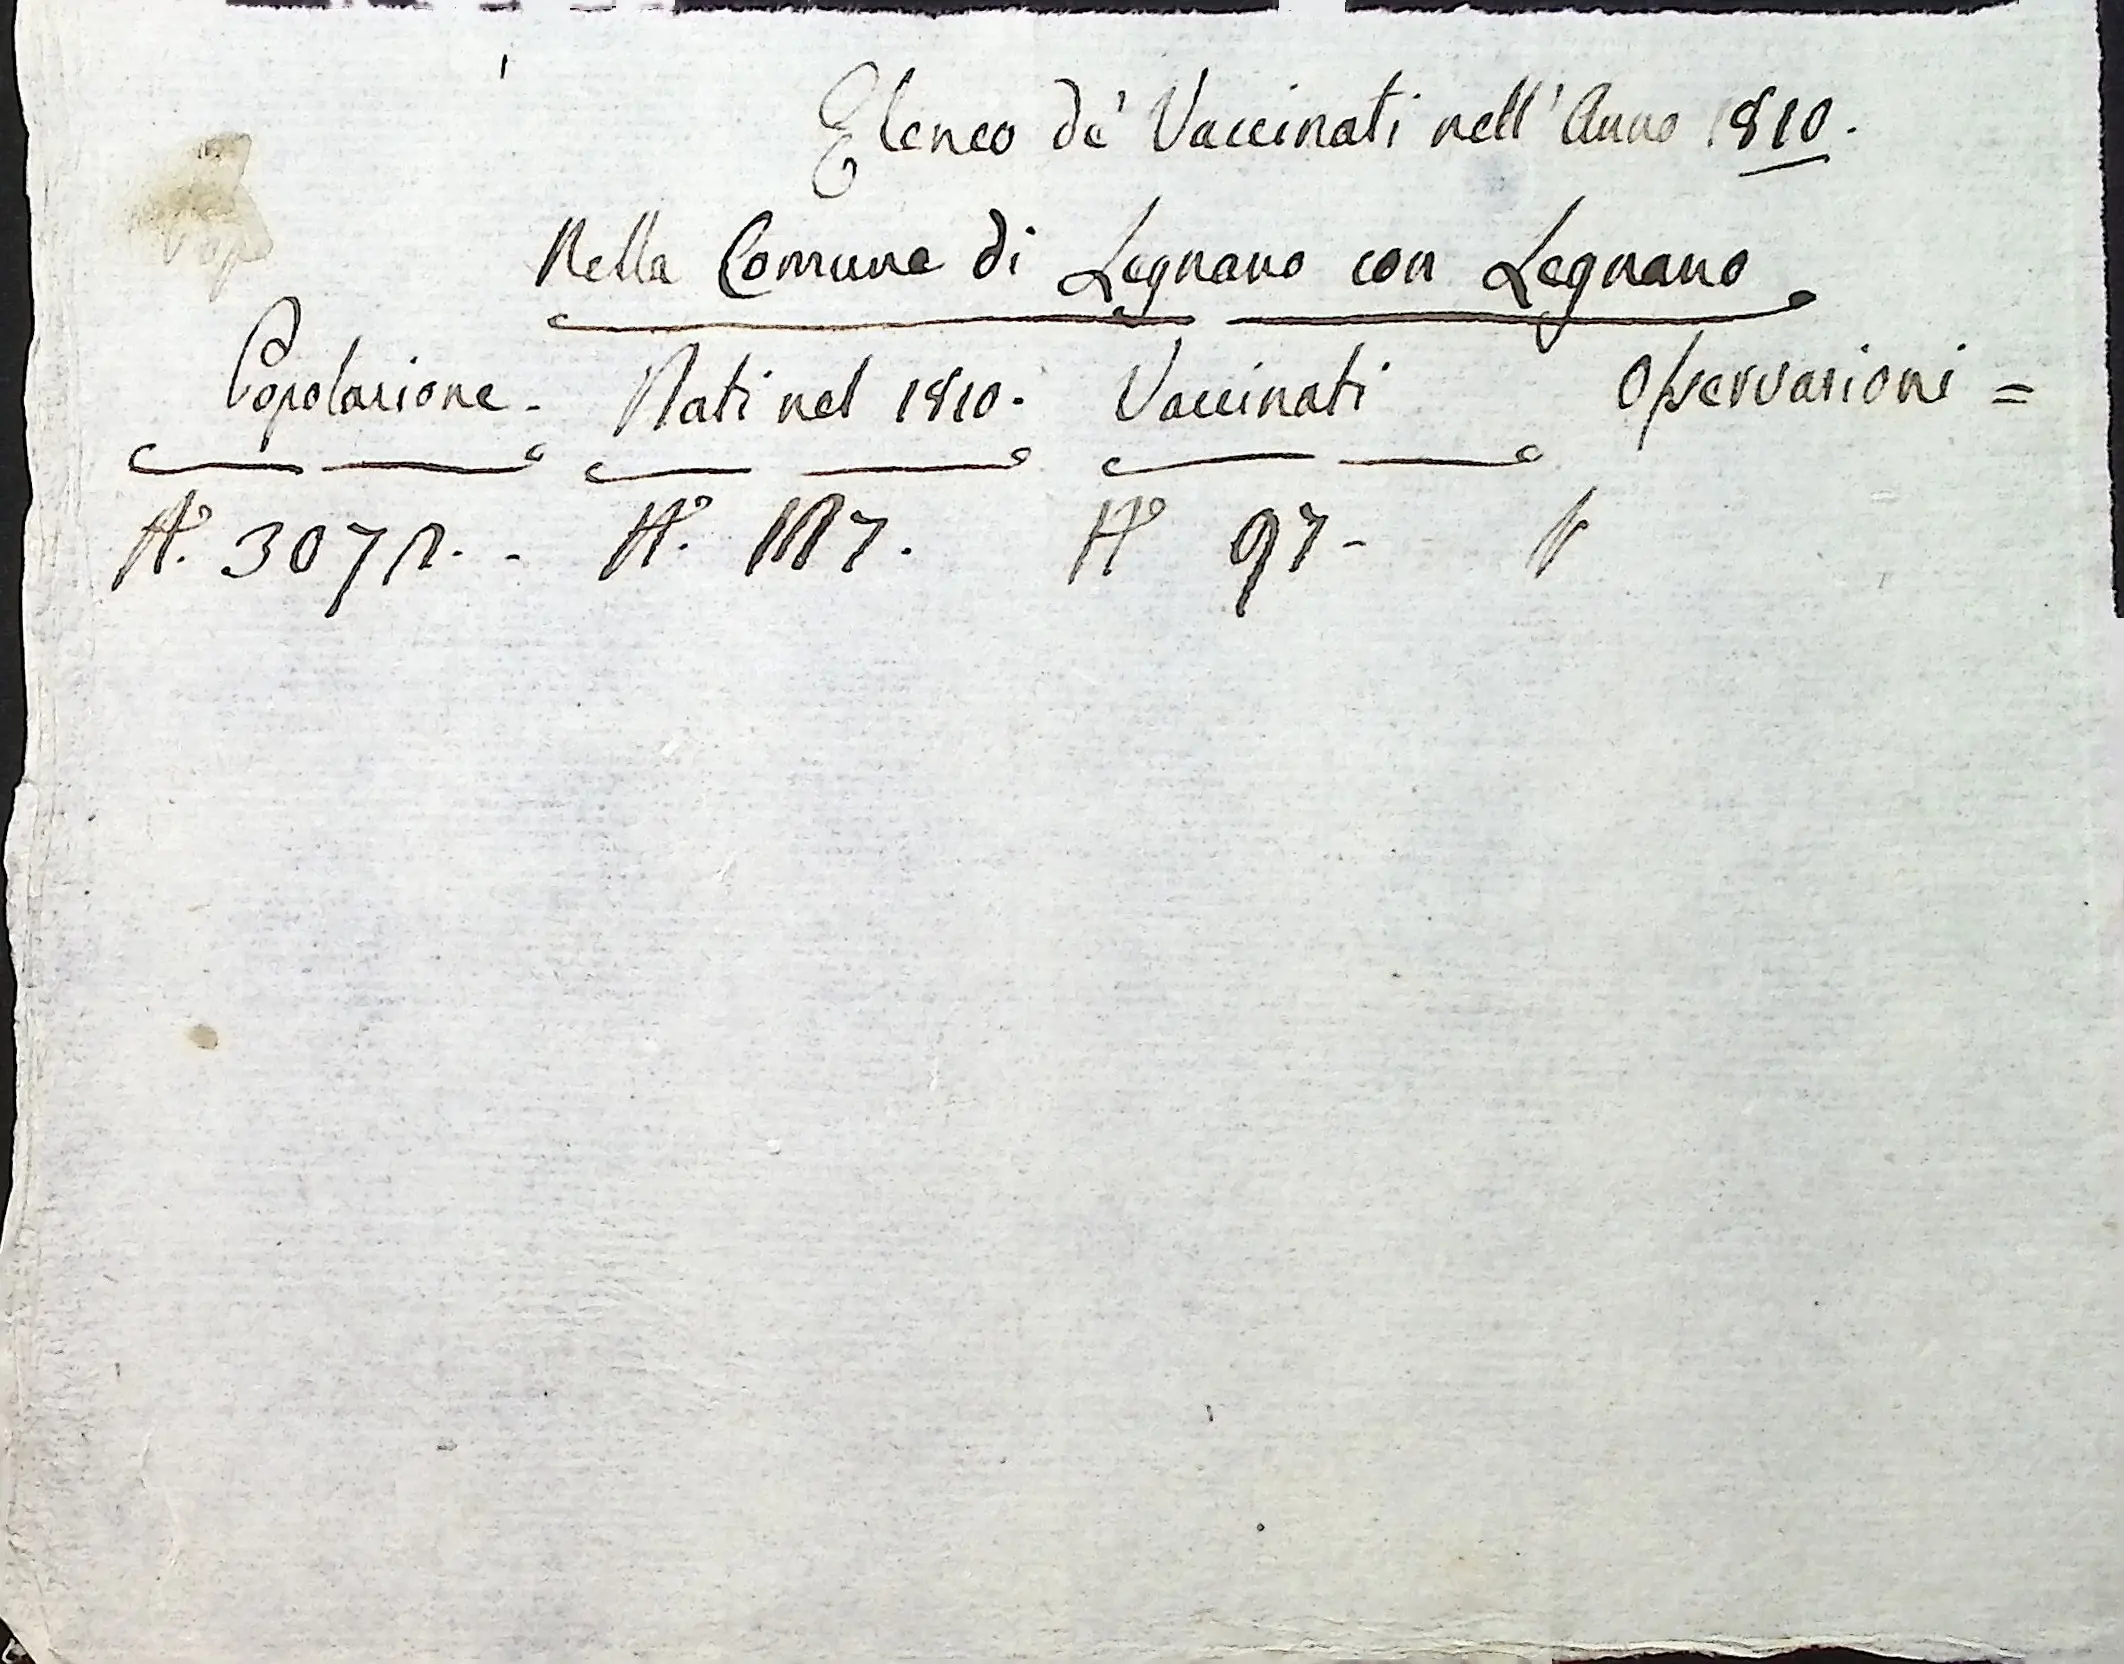 Elenco de' Vaccinati nell' Anno 1810.
Nella Comune di Legnano con Legnano
Popolazione - Nati nel 1810. Vaccinati Osservazioni =
N.º 3072. - N.º 127. Nº 97 -